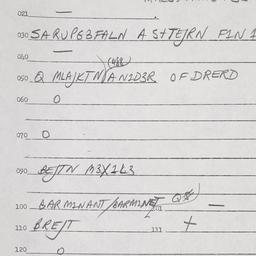 021 —
030 SARUPG3FALN A S+TEJRN F1N1
040 —
050 Q MLAJKTN/AN1D3R OF DRERD
060 O
070 O
090 BEJTN M3X1L3
100 BARM1NANT/BARM1NET —
110 BREJT 111 +
120 O